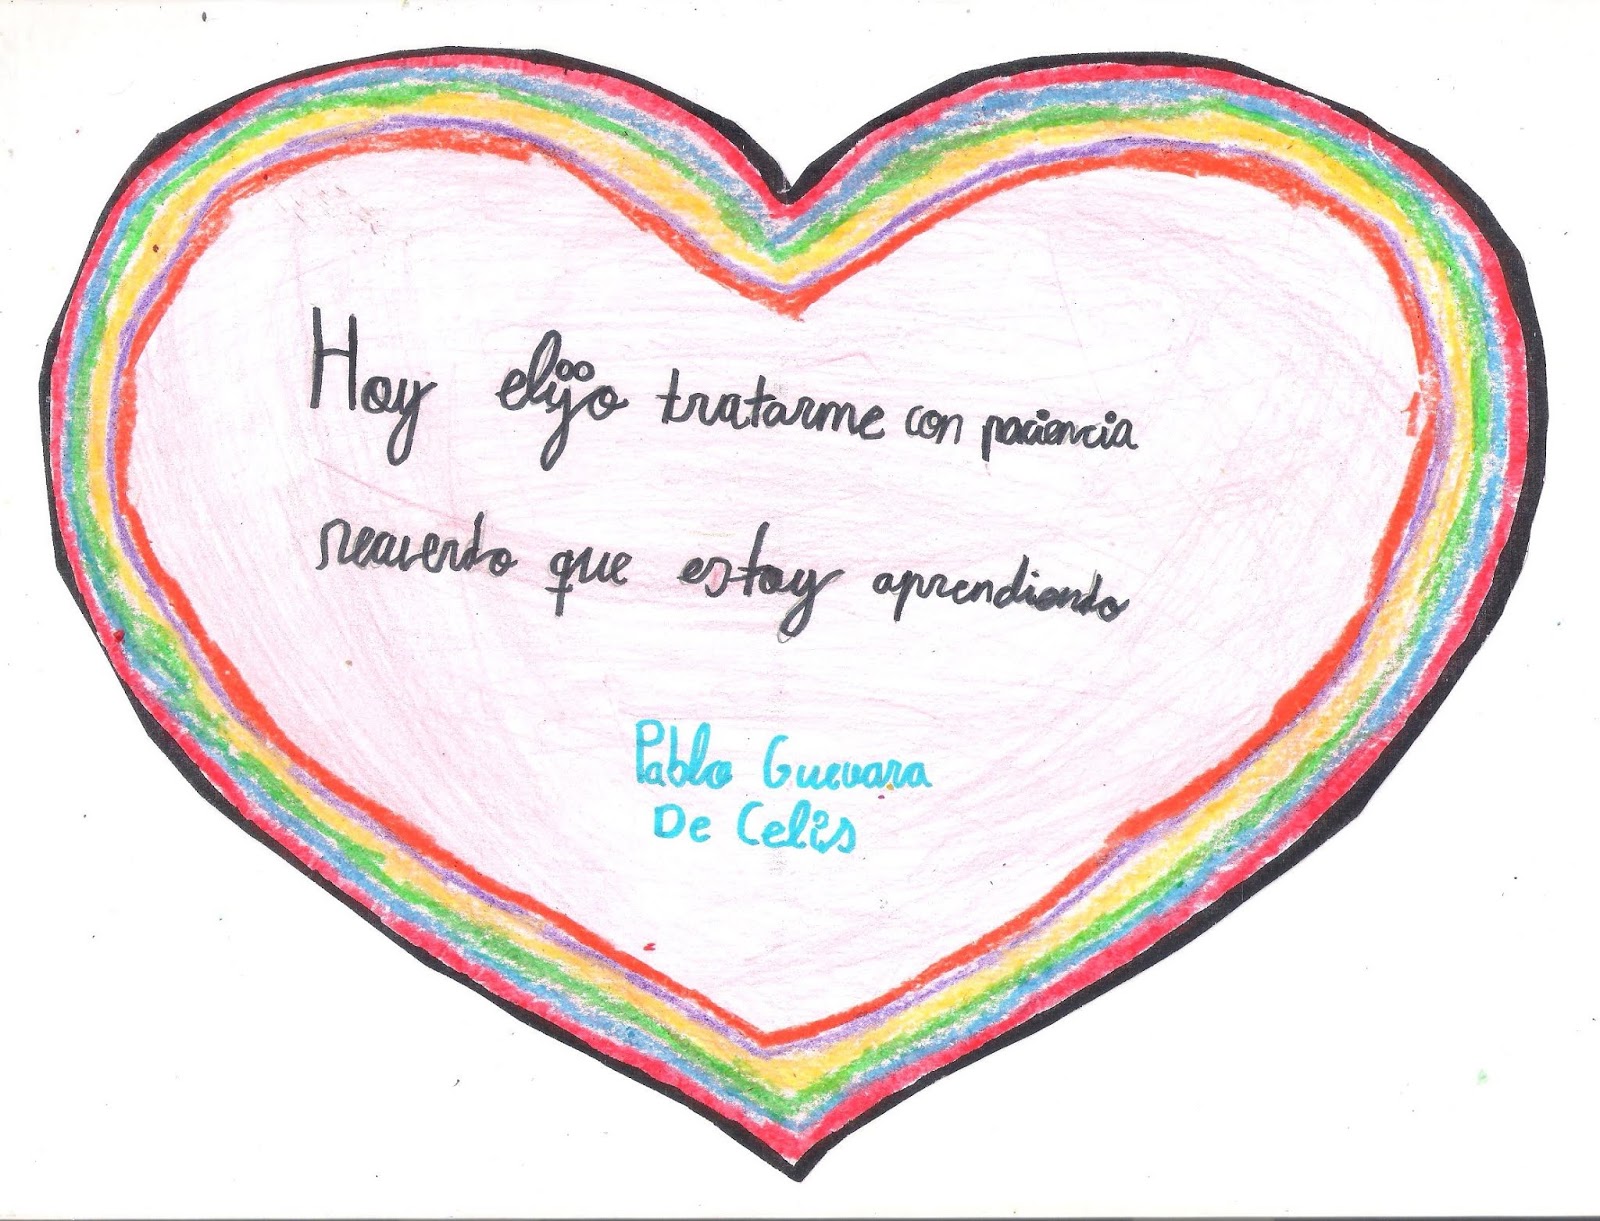 Hoy elijo tratarme con paciencia
recuerdo que estoy aprendiendo
Pablo Guevara
De Celis